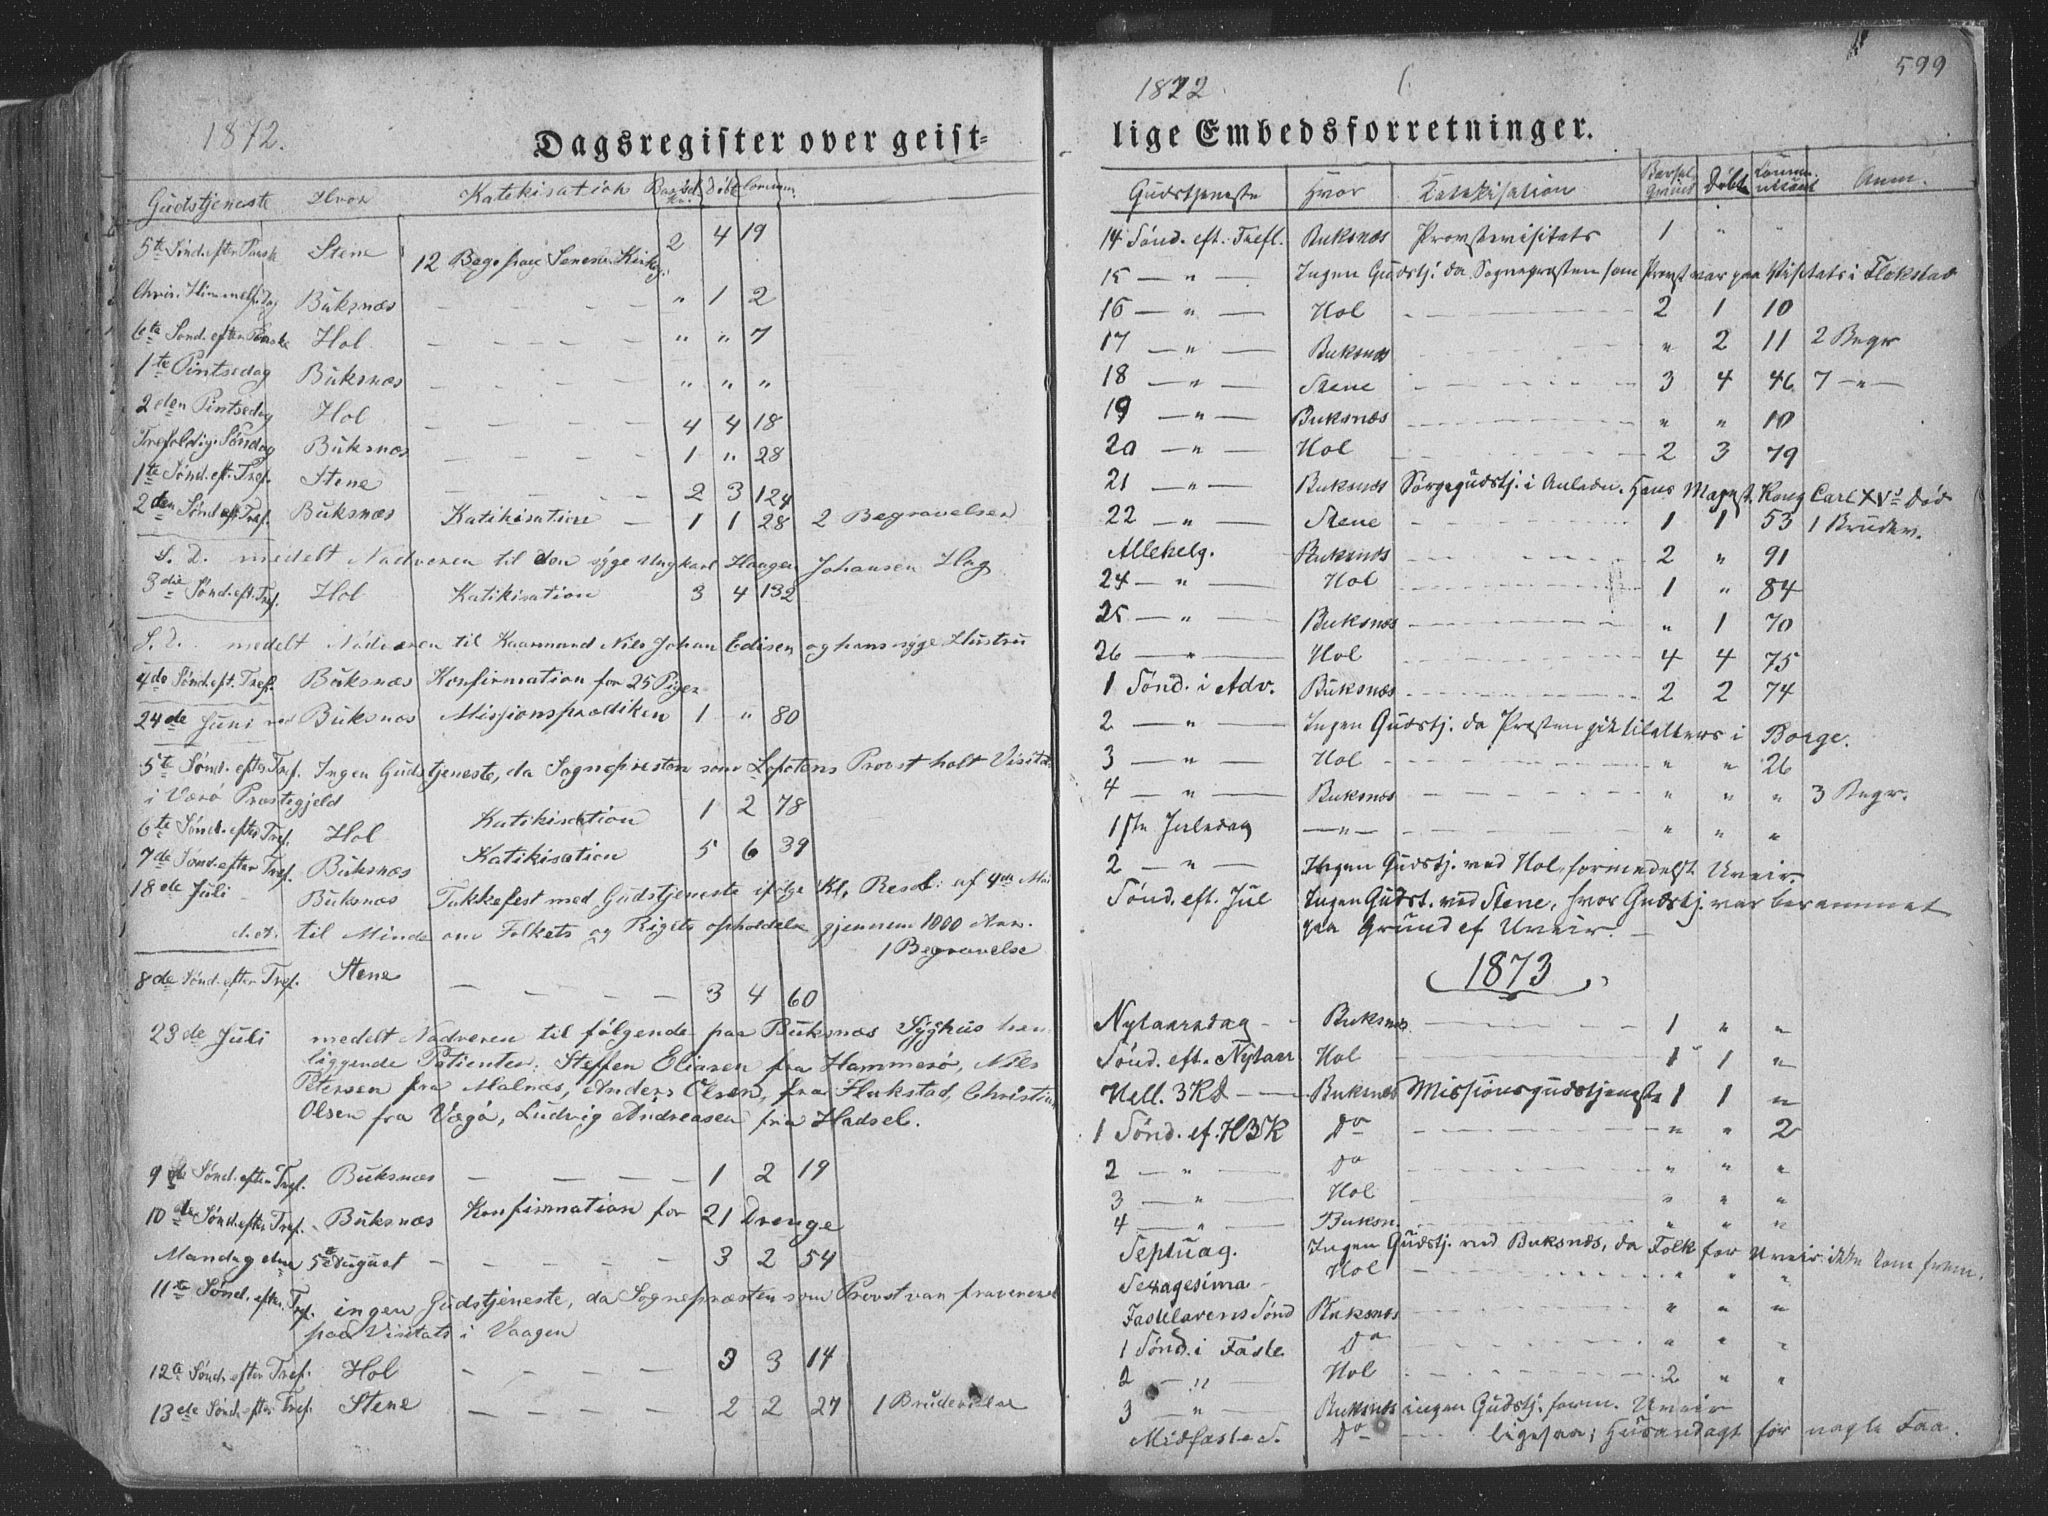 1872.
Dagsregister over geist=
Gudstjeneste Hvor Katikisation Døbt Commun.
5te Sønd. efter Paaske Stene 12 Begr. paa Kirkeg. 2 4 19
Chris. Himmelf. dag Buksnæs — — — " 1 2
6te Sønd. efter Paaske Hol — — — " " 7
1te Pintsedag Buksnæs — — — " " "
2den Pintsedag Hol — — — 4 4 18
Trefoldig. Søndag Buksnæs — — — 1 " 28
1te Sønd. eft. Tref. Stene — — — 2 3 124
2den Sønd. eft. Tref. Buksnæs Katikisation — 1 1 28 2 Begravelser
S. D. medelt Nadveren til den syge Ungkarl Haagen Johansen Hag
3die Sønd. eft. Tref. Hol Katikisation 3 4 132
S. D. medelt Nadveren til Kaarmand Nils Johan Edisen og hans syge Hustru
4de Sønd. eft. Tref. Buksnæs Konfirmation for 25 Piger
24de Juni ved Buksnæs Missionsprædiken 1 " 80
5te Sønd. efter Tref. Ingen Gudstjeneste, da Sognepresten som Lofotens Provst holt Visitats
i Værø Præstegjeld
6te Sønd. efter Tref. Hol Katikisation 1 2 78
7de Sønd. efter Tref. Buksnæs Katikisation 5 6 39
18de Juli Buksnæs Takkefest med Gudstjeneste ifølge Kl. Resol. af 4de Mai
d. A. til Minde om Folkets og Rigets opholdelse gjennem 1000 Aar.
1 Begravelse
8de Sønd. efter Tref. Stene — — — 3 4 60
23de Juli medelt Nadveren til følgende paa Buksnæs Sygehus hen
liggende Patienter: Steffen Eliasen fra Hammerø, Nils
Petersen fra Malnæs, Anders Olsen, fra Flakstad, Christian
Olsen fra Vægø, Ludvig Andreasen fra Hadsel.
9de Sønd. efter Tref. Buksnæs — — — 1 2 19
10de Sønd. efter Tref. Buksnæs Konfirmation for 21 Drenge
Mandag den 5te August — — — 3 2 54
11te Sønd. efter Tref. ingen Gudstjeneste, da Sognepræsten som Provst var fraværende
paa Visitats i Vaagen
12te Sønd. efter Tref. Hol — — — 3 3 14
13de Sønd. efter Tref. Stene — — — 2 2 27 1 Brudevielse
599
1872.
lige Embedsforretninger.
Gudstjeneste Hvor Katekisation Døbte Anm.
14 Sønd. eft. Trefl. Buksnæs Provstevisitats 1 " "
15 — " — Ingen Gudstj. da Sognepræsten som Provst var paa Visitats i Flakstad
16 — " — Hol — — — 2 1 10
17 — " — Buksnæs — — — " 2 11 2 Begr
18 — " — Stene — — — 3 4 46 7 — " —
19 — " — Buksnæs — — — " " 10
20 — " — Hol — — — 2 3 79
21 — " — Buksnæs Sørgegudstj. i Anledn. Hans Majest. Kong Carl XVs Død
22 — " — Stene — — — 1 1 53 1 Brudev.
Allehelg. Buksnæs — — — 2 " 91
24 — " — Hol — — — 1 " 84
25 — " — Buksnæs — — — " 1 70
26 — " — Hol — — — 4 4 75
1 Sønd. i Adv. Buksnæs — — — 2 2 74
2 — " — Ingen Gudstj. da Præsten gik tilalters i Borge.
3 — " — Hol — — — " " 26
4 — " — Buksnæs — — — " " " 3 Begr.
1ste Juledag — " — — — — " " "
2 — " — Ingen Gudstj. ved Hol, formedelst Uveir.
Sønd. eft. Jul Ingen Gudst. ved Stene, hvor Gudstj. var berammet
paa Grund af Uveir. —
1873
Nytaarsdag — Buksnæs — — — 1 " "
Sønd. eft. Nytaar Hol — — — 1 1 "
Hell. 3 K D — Buksnæs Missionsgudstjeneste 1 1 "
1 Sønd. ef. H3K Do — — — " " 2
2 — " — Do — — — " " "
3 — " — Hol — — — " " "
4 — " — Buksn. — — — " " "
Septuag. Ingen Gudstj. ved Buksnæs, da Folk for Uveir ikke kom frem.
Sexagesima — Hol — — — " " "
Fastelavens Sønd Buksnæs — — — " " "
1 Sønd. i Faste Do — — — " " "
2 — " — Hol — — — 2 " "
3 — " — Buksnæs ingen Gudstj. form. Uveir
Midfaste S. Do — — ligesaa; Husandagt for nogle Faa.